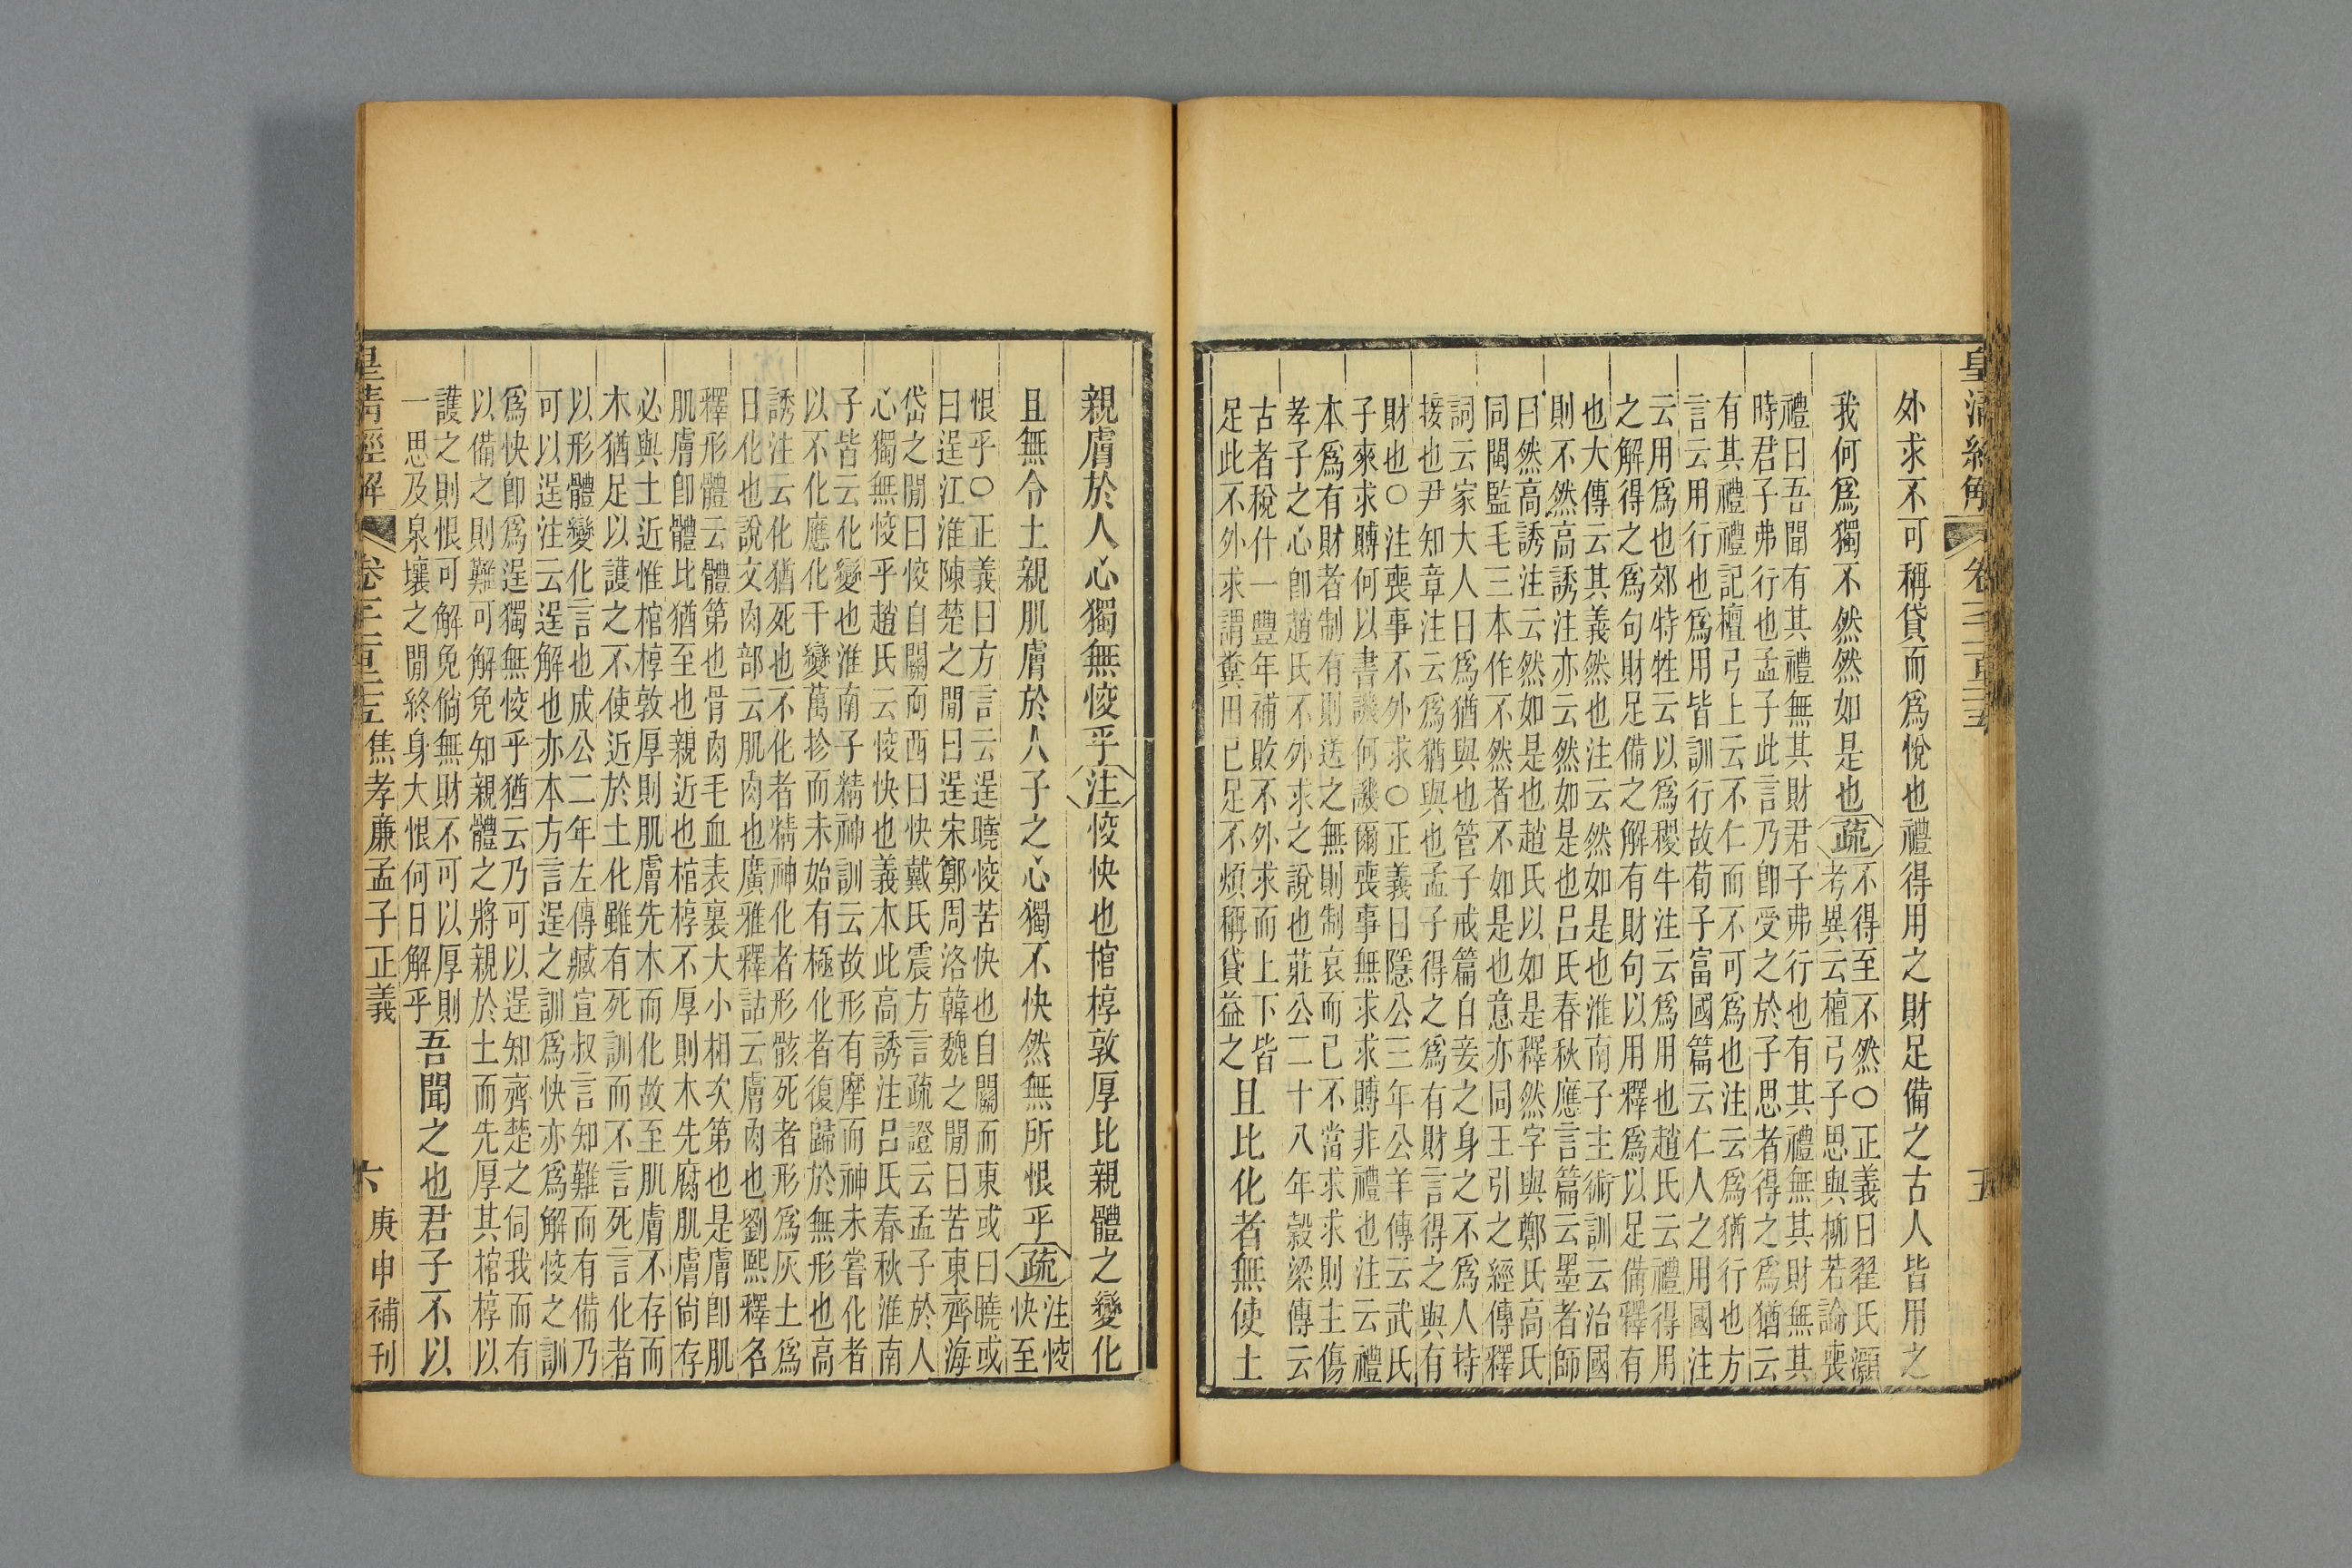 外求不可稱貸而爲悅也禮得用之財足備之古人皆用之
我何爲獨不然然如是也疏不得至不然〇正義曰翟氏灝
考異云檀弓子思與柳若論喪
禮曰吾聞有其禮無其財君子弗行也有其禮無其財無其
時君子弗行也孟子此言乃卽受之於子思者得之爲猶云
有其禮禮記檀弓上云不仁而不可爲也注云爲猶行也方
言云用行也爲用皆訓行故荀子富國篇云仁人之用國注
云用爲也郊特牲云以爲稷牛注云爲用也趙氏云禮得用
之解得之爲句財足備之解有財句以用釋爲以足備釋有
也大傳云其義然也注云然如是也淮南子主術訓云治國
則不然高誘注亦云然如是也呂氏春秋應言篇云墨者師
曰然高誘注云然如是也趙氏以如是釋然字與鄭氏高氏
同閩監毛三本作不然者不如是也意亦同王引之經傳釋
詞云家大人曰爲猶與也管子戒篇自妾之身之不爲人持
接也尹知章注云爲猶與也孟子得之爲有財言得之與有
財也〇注喪事不外求〇正義曰隱公三年公羊傳云武氏
子來求賻何以書譏何譏爾喪事無求求賻非禮也注云禮
本爲有財者制有則送之無則制哀而已不當求求則主傷
孝子之心卽趙氏不外求之說也莊公二十八年穀梁傳云
古者稅什一豐年補敗不外求而上下皆
足此不外求謂糞田已足不煩稱貸益之
且比化者無使土
皇清經解
卷
五
親膚於人心獨無恔乎注恔快也棺椁敦厚比親體之變化
且無令土親肌膚於人子之心獨不快然無所恨乎疏注恔
快至
恨乎〇正義曰方言云逞曉恔苦快也自關而東或曰曉或
曰逞江淮陳楚之閒曰逞宋鄭周洛韓魏之閒曰苦東齊海
岱之閒曰恔自關而西曰快戴氏震方言疏證云孟子於人
心獨無恔乎趙氏云恔快也義本此高誘注呂氏春秋淮南
子皆云化變也淮南子精神訓云故形有摩而神未嘗化者
以不化應化千變萬抮而未始有極化者復歸於無形也高
誘注云化猶死也不化者精神化者形骸死者形爲灰土爲
日化也說文肉部云肌肉也廣雅釋詁云膚肉也劉熙釋名
釋形體云體第也骨肉毛血表裏大小相次第也是膚卽肌
肌膚卽體比猶至也親近也棺椁不厚則木先腐肌膚尙存
必與土近惟棺椁敦厚則肌膚先木而化故至肌膚不存而
木猶足以護之不使近於土化雖有死訓而不言死言化者
以形體變化言也成公二年左傳臧宣叔言知難而有備乃
可以逞注云逞解也亦本方言逞之訓爲快亦爲解恔之訓
爲快卽爲逞獨無恔乎猶云乃可以逞知齊楚之伺我而有
以備之則難可解免知親體之將親於土而先厚其棺椁以
護之則恨可解免倘無財不可以厚則
一思及泉壤之閒終身大恨何日解乎
吾聞之也君子不以
皇清經解
焦孝廉孟子正義
六
庚申補刊